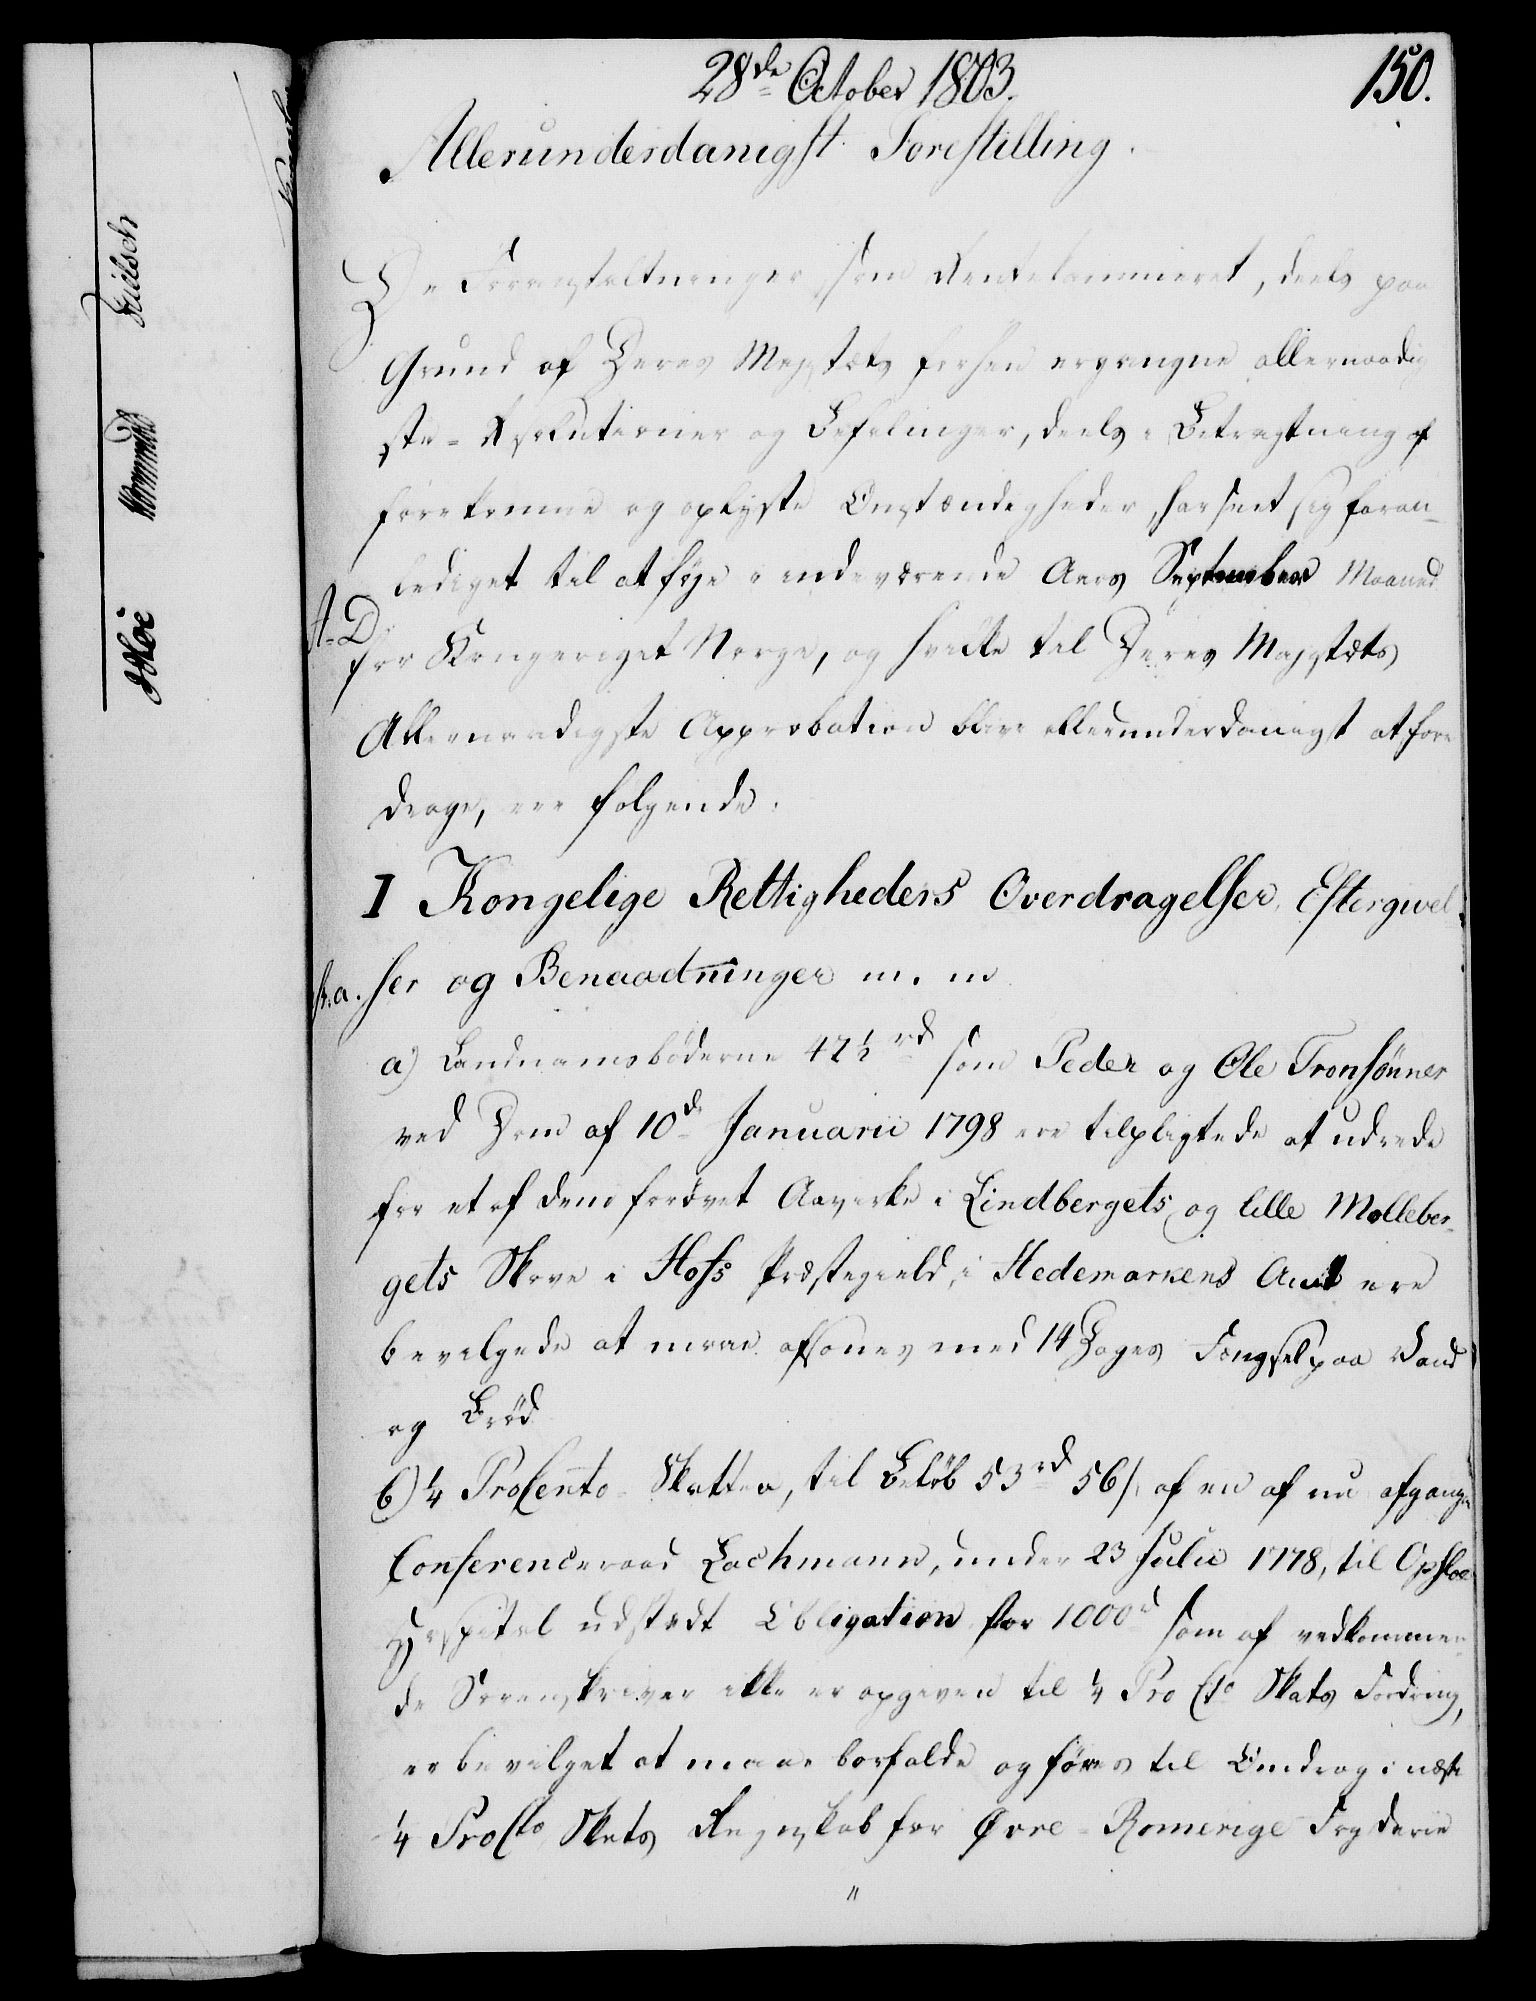 28de October 1803.
150.
Allerunderdanigst Forestilling.
De Foranstaltninger som Rentekammeret, deels paa
Grund af Deres Majestæts forhen ergangne allernaadig
ste Resolutioner og Befalinger, deels i Betragtning af
forekomne og oplyste Omstændigheder, har seet sig foran-
lediget til at føje i indeværende Aars September Maaned
A-D
for Kongeriget Norge, og hvilke til Deres Majestæts
Allernaadigste Approbation blive allerunderdanigst at fore
drage, ere følgende.
I Kongelige Rettigheders Overdragelser, Eftergivel-
ser og Benaadninger m. m
a) Landnamsbøderne 42½ rd som Peder og Ole Tronsönner
ved Dom af 10de Januarii 1798 ere tilpligtede at udrede
for et af dem forøvet Aavirke i Lindbergets og lille Molleber-
gets Skove i Hofs Præstegield, i Hedemarkens Amt ere
bevilgede at maae afsones med 14 Dages Fængsel paa Vand
og Brød
b) ¼ ProCento Skatten, til Beløb 53 rd 56 s. af en af nu afgangne
Conferenceraad Lachmann, under 23 Julii 1778, til Opsloe
Hospital udstædt Obligation for 1000 rd som af vedkommen-
de Sorenskriver ikke er opgiven til ¼ Pro Cto Skats Fordring,
er bevilget at maae bortfalde og føres til Uddrag i næste
¼ ProCto Skats Regnskab for Øvre-Romerige Fogderie
"